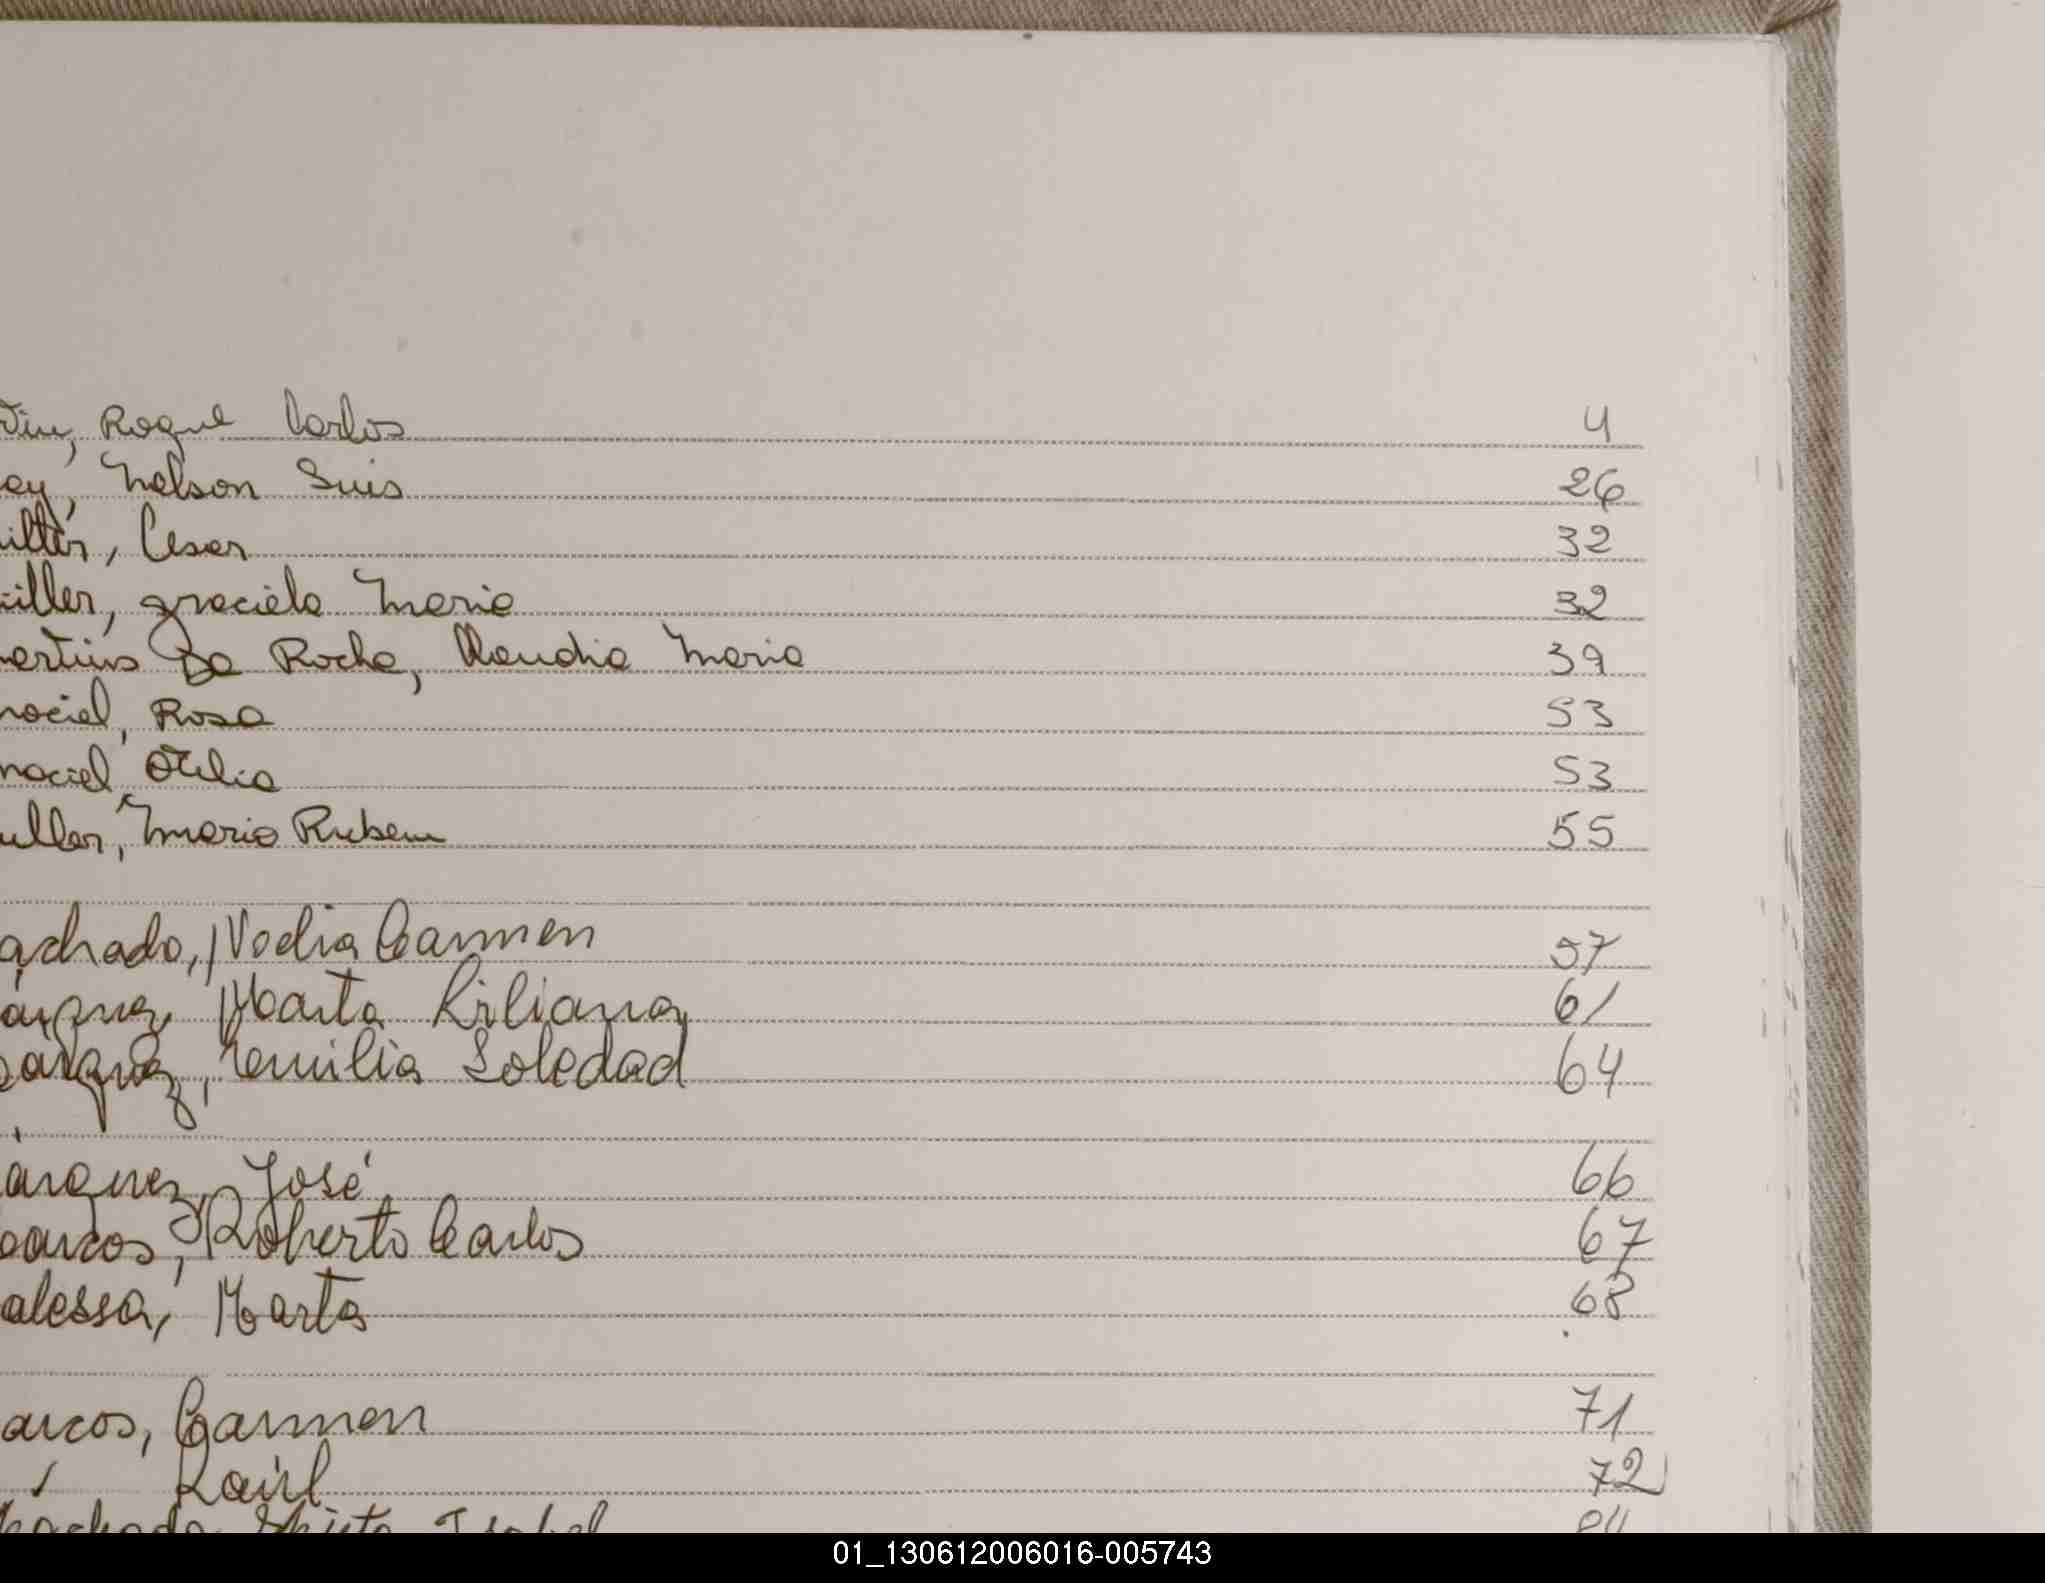 Roque Carlos 4
ey, Nelson Luis 26
iller, Cesar 32
iller, Graciela Maria 32
artins Da Rocha, Claudia Maria 39
aciel, Rosa 53
aciel, Otilia 53
uller, Mario Ruben 55
achado, Nadia Carmen 57
árquez, Marta Liliana 61
árquez, Emilia Soledad 64
arquez, José 66
arcos, Roberto Carlos 67
alessa, Marta 68
arcos, Carmen 71
Raúl 72
achado Isabel 84
01_130612006016-005743